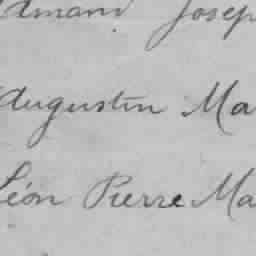 Amand Josep
Augustin Ma
Léon Pierre Ma